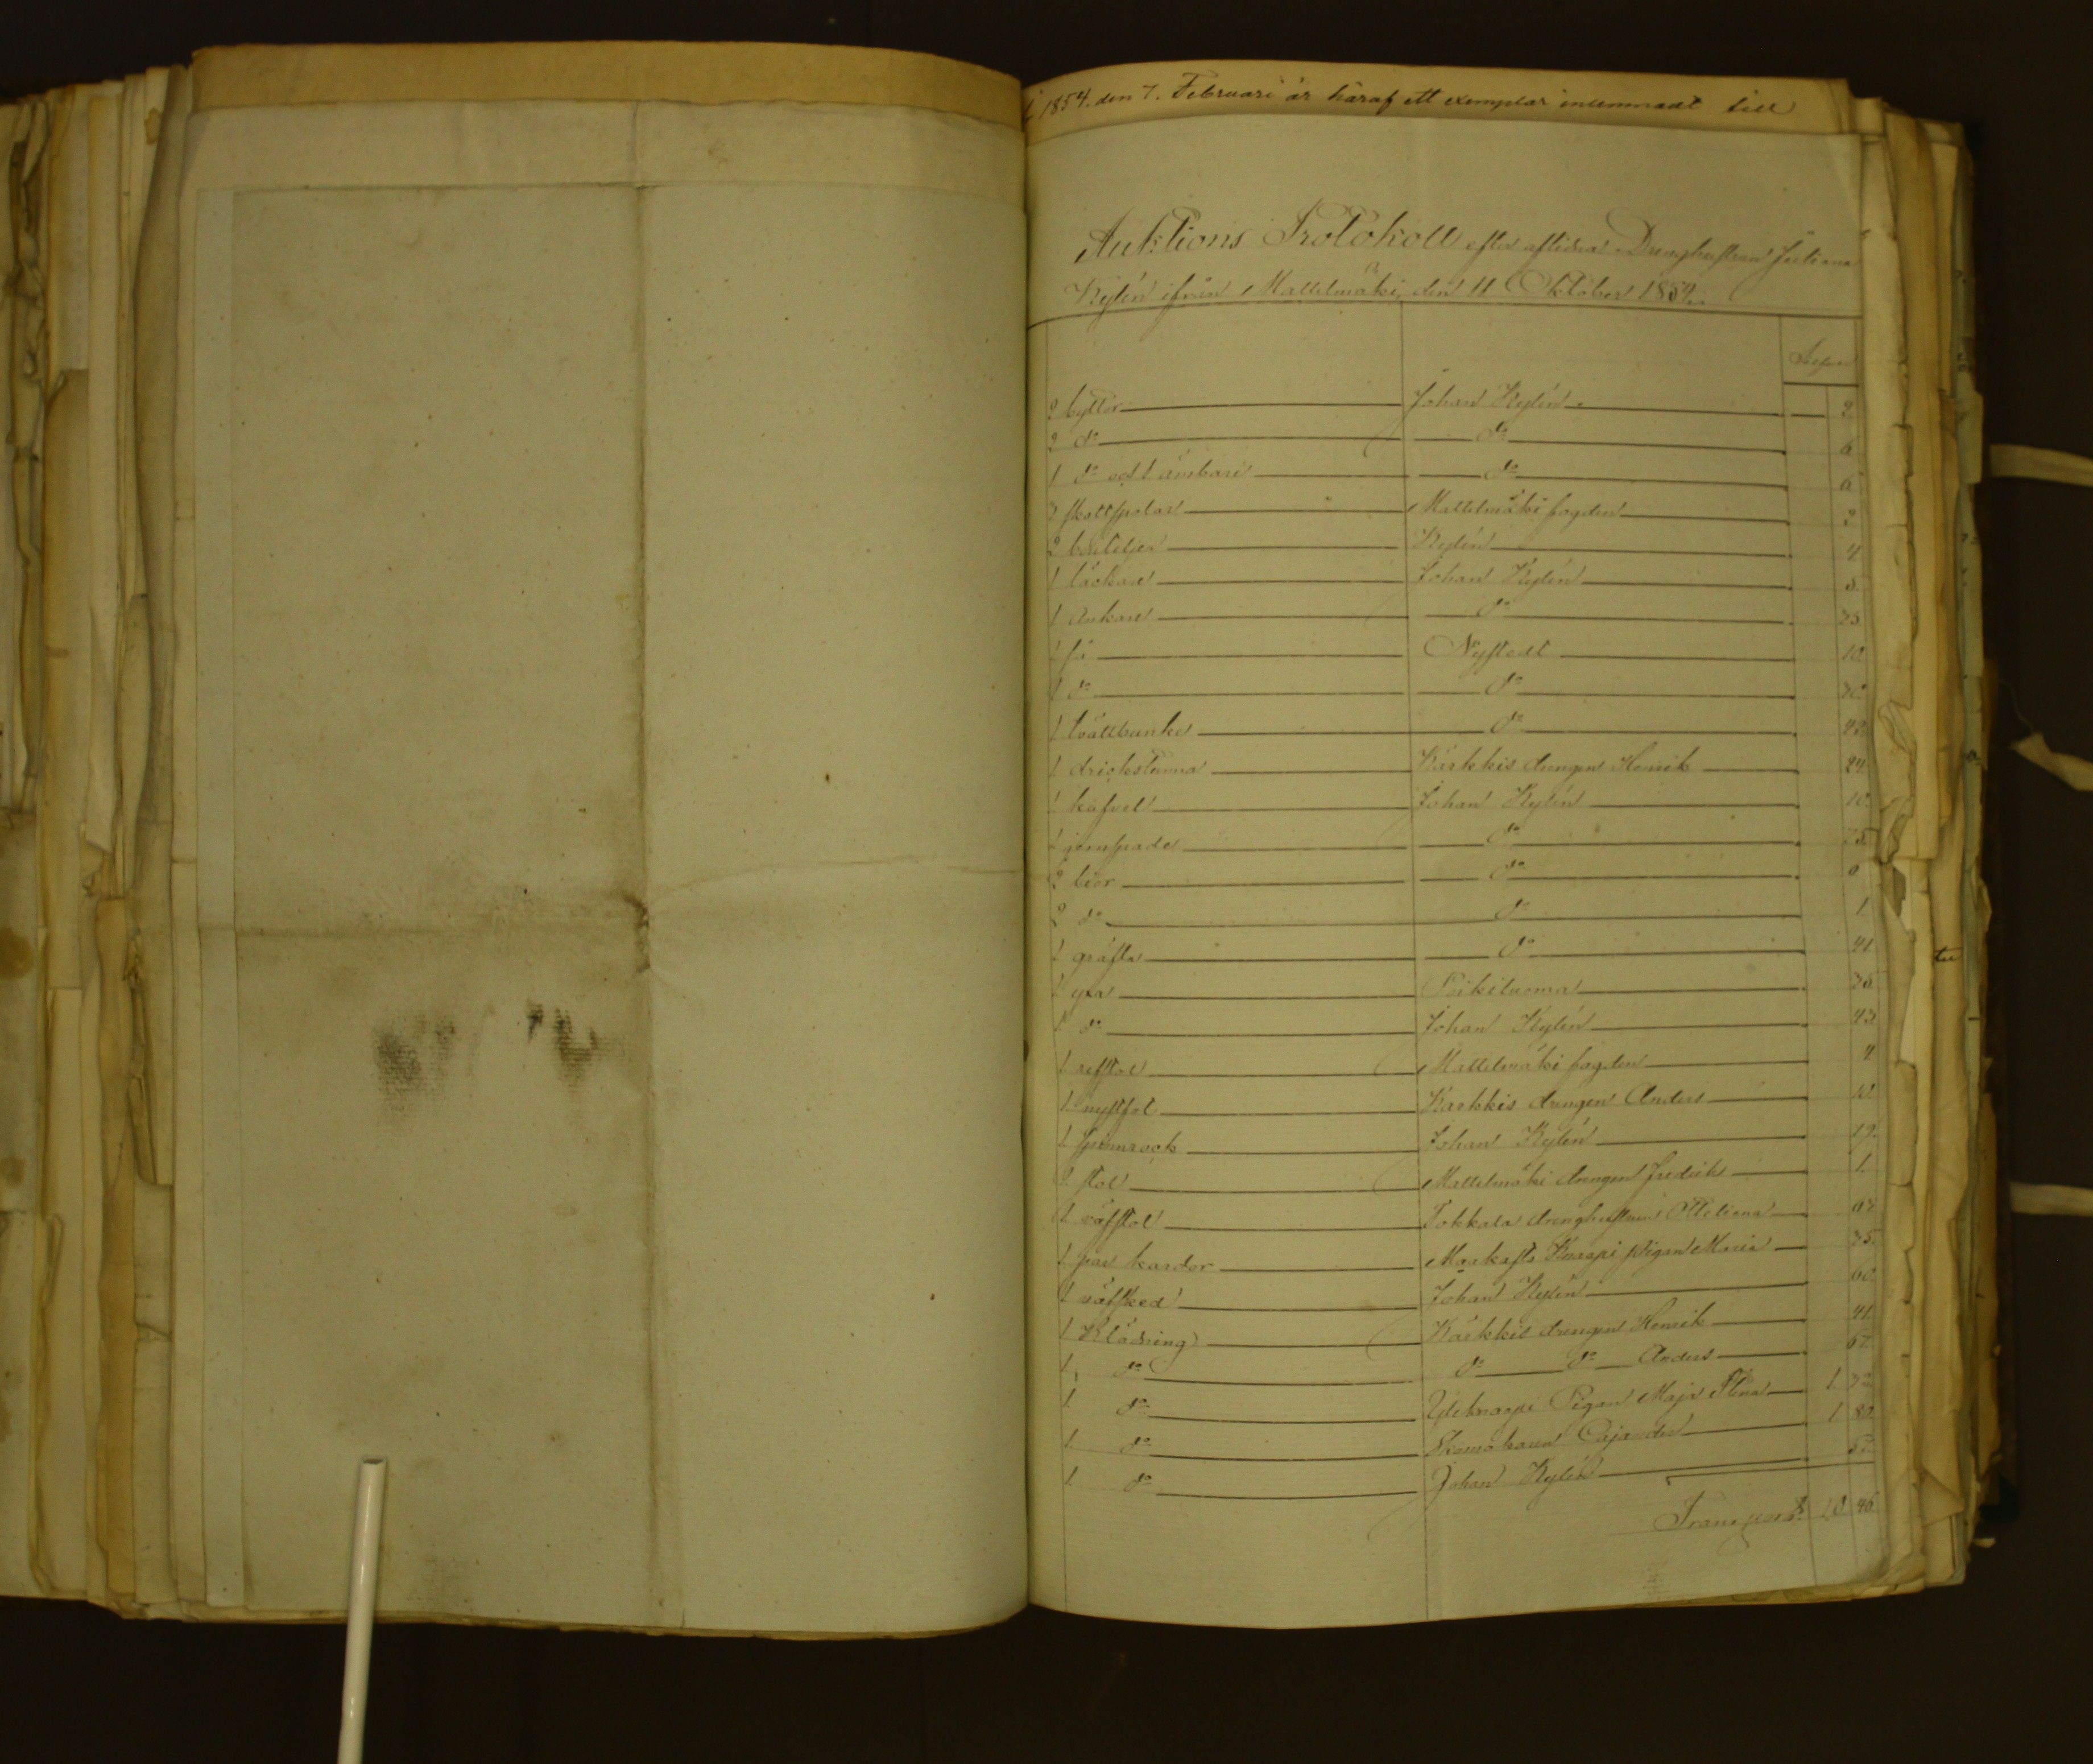 1854. den 7. Februari är häraf ett exemplar inlemnadt till
Auktions Protokoll efter aflidna Drenghustrun Juliana
Kylén ifrån Mattilmäki, den 11 Oktober 1854.
2 byttor Johan Kylén 2
2 do do 6
1 do och 1 ämbare do 6
skottspolar Mattilmäki fogden 2
2 bouteljer Kylén 4
1 lackare Johan Kylén 5
1 Ankare do 25
1 så Nystedt 10
1 do do 30
1 tvättbunke do 43
1 dricks tunna Kärkkis drengen Henrik 24
1 kafvel Johan Kylén 10
1 jernspade do 25
2 liar do
2 do do 1
1 gräfta do 41
1 yxa Poikiluoma 25
1 do Johan Kylén 43
1 refstol Mattilmäki fogden 4
1 nystfot Karkkis drengen Anders 10
1 spinnrock Johan Kylén 19
stol Mattilmäki drengen Fredrik 1
1 väfstol Tokkala drenghustrun Ottiliana
1 par kardor Knaapi pigan Maria 35
1 väfsked Johan Kylén 60
1 Klädning Kärkkis drengen Henrik 41
1 do do do Anders
1 do Yliknaapi Pigan Maja Stina 1
1 do Skomakaren Cajander 1 80
1 do Johan Kylén
Transport 10 46